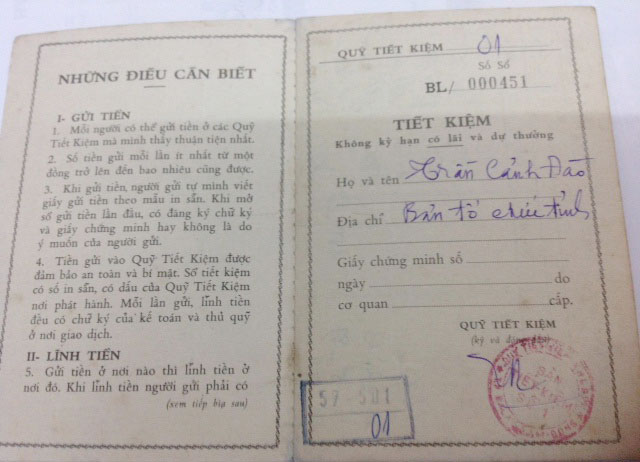 NHỮNG ĐIỀU CẦN BIẾT
I- GỬI TIỀN
1. Mỗi người có thể gửi tiền ở các Quỹ
Tiết Kiệm mà mình thấy thuận tiện nhất.
2. Số tiền gửi mỗi lần ít nhất từ một
đồng trở lên đến bao nhiêu cũng được.
3. Khi gửi tiền, người gửi tự mình viết
giấy gửi tiền theo mẫu in sẵn. Khi mở
sổ gửi tiền lần đầu, có đăng ký chữ ký
và giấy chứng minh hay không là do
ý muốn của người gửi.
4. Tiền gửi vào Quỹ Tiết Kiệm được
đảm bảo an toàn và bí mật. Sổ tiết kiệm
có số in sẵn, có dấu của Quỹ Tiết Kiệm
nơi phát hành. Mỗi lần gửi, lĩnh tiền
đều có chữ ký của kế toán và thủ quỹ
ở nơi giao dịch.
II- LĨNH TIỀN
5. Gửi tiền ở nơi nào thì lĩnh tiền ở
nơi đó. Khi lĩnh tiền người gửi phải có
(xem tiếp bìa sau)
QUỸ TIẾT KIỆM 01
Số Sổ
BL/ 000451
TIẾT KIỆM
Không kỳ hạn có lãi và dự thưởng
Họ và tên Trần Cảnh Đào
Địa chỉ Bản tổ chức tỉnh
Giấy chứng minh số
ngày do
cơ quan cấp.
QUỸ TIẾT KIỆM
(ký và đóng dấu)
57 501
01